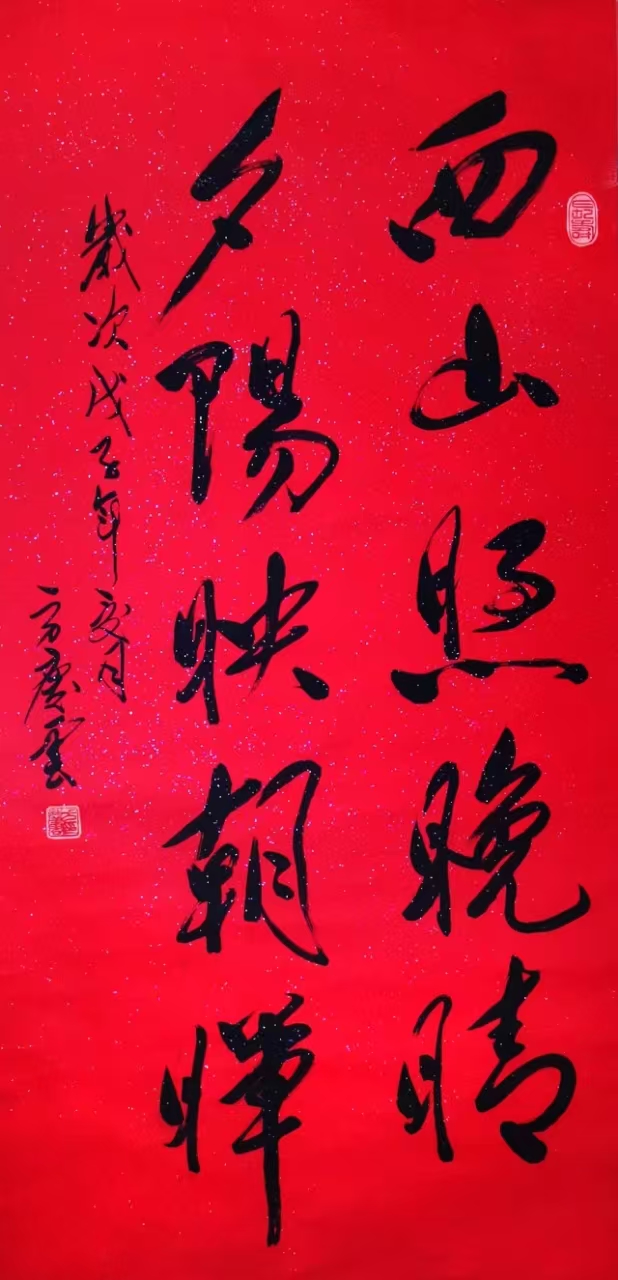 西山照晚晴
夕陽映朝暉
歲次戊子年夏月
方慶雲